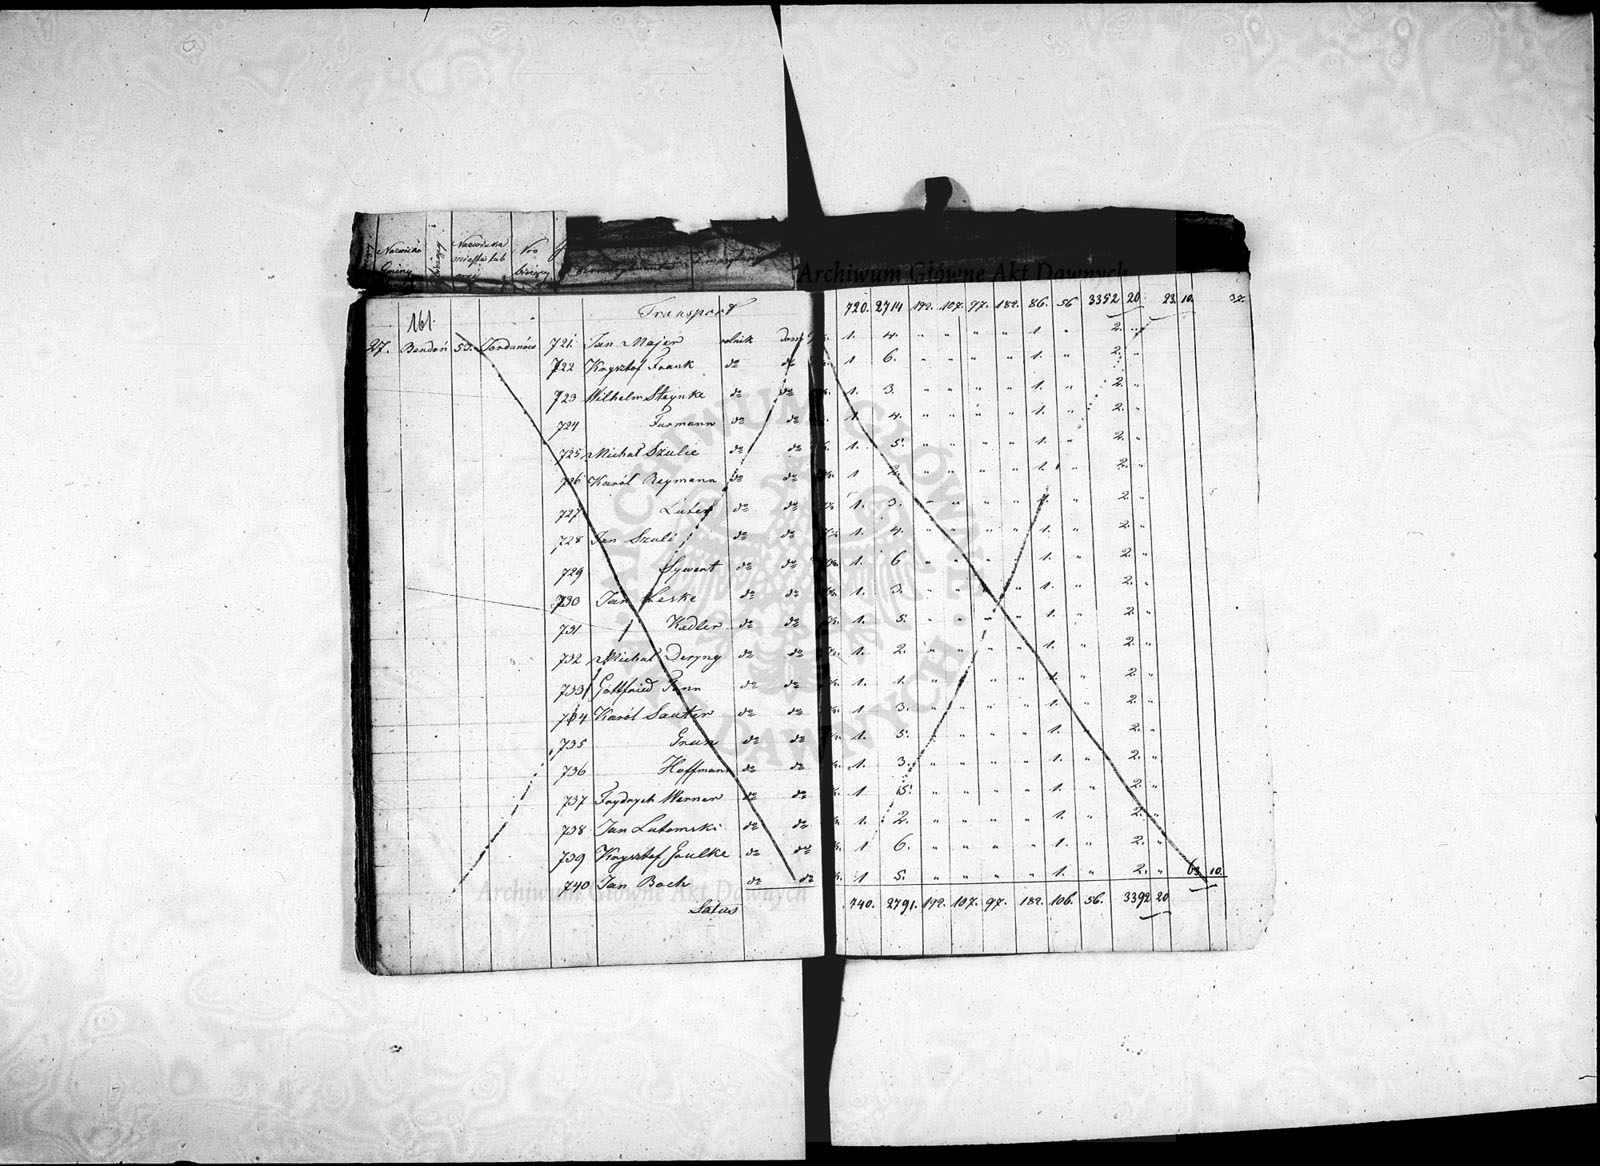 Nazwisko Gminy
Nazwiska miasta lub wsi
Nro bieżący
Archiwum Główne Akt Dawnych
Transport 720. 2714 192. 107. 97. 182. 86. 56 3352 20. 23. 10. 32.
161.
27. Bendoń 53. Jordanów 721. Jan Majer rolnik 1. 4. " " " " 1. " 2. "
722 Krysztof Frank do do 1 6. " " " " 1. " 2. "
723 Wilhelm Steynke do do 1. 3. " " " " 1. " 2. "
724 Furmann do do 1. 4. " " " " 1. " 2. "
725 Michał Szulic do do 1. 5. " " " " 1. " 2. "
726 Karól Reymann do do 1 2. " " " " 1. " 2. "
727 Luter do do 1. 3. " " " " 1. " 2. "
728 Jan Szulc do do 1. 4. " " " " 1. " 2. "
729 Sywert do do 1. 6 " " " " 1. " 2. "
730 Jan Leske do do 1. 3. " " " " 1. " 2. "
731 Kedler do do 1. 5. " " " " 1. " 2. "
732 Michał Deryng do do 1. 2. " " " " 1. " 2. "
733 Gottfried Penn do do 1. 1. " " " " 1. " 2. "
734 Karól Sauter do do 1 3. " " " " 1. " 2. "
735 Grun do do 1. 5. " " " " 1. " 2. "
736 Hoffmann do do 1. 3. " " " " 1. " 2. "
737 Frydrych Werner do do 1 5. " " " " 1. " 2. "
738 Jan Lutomski do do 1. 2. " " " " 1. " 2. "
739 Krysztof Gulke do do 1 6. " " " " 1. " 2. "
740 Jan Boch do do 1 5. " " " " 1. " 2. " 63. 10.
Latus 740. 2791. 192. 107. 97. 182. 106. 56. 3392 20
Archiwum Główne Akt Dawnych
ARCHIWUM GŁÓWNE AKT DAWNYCH